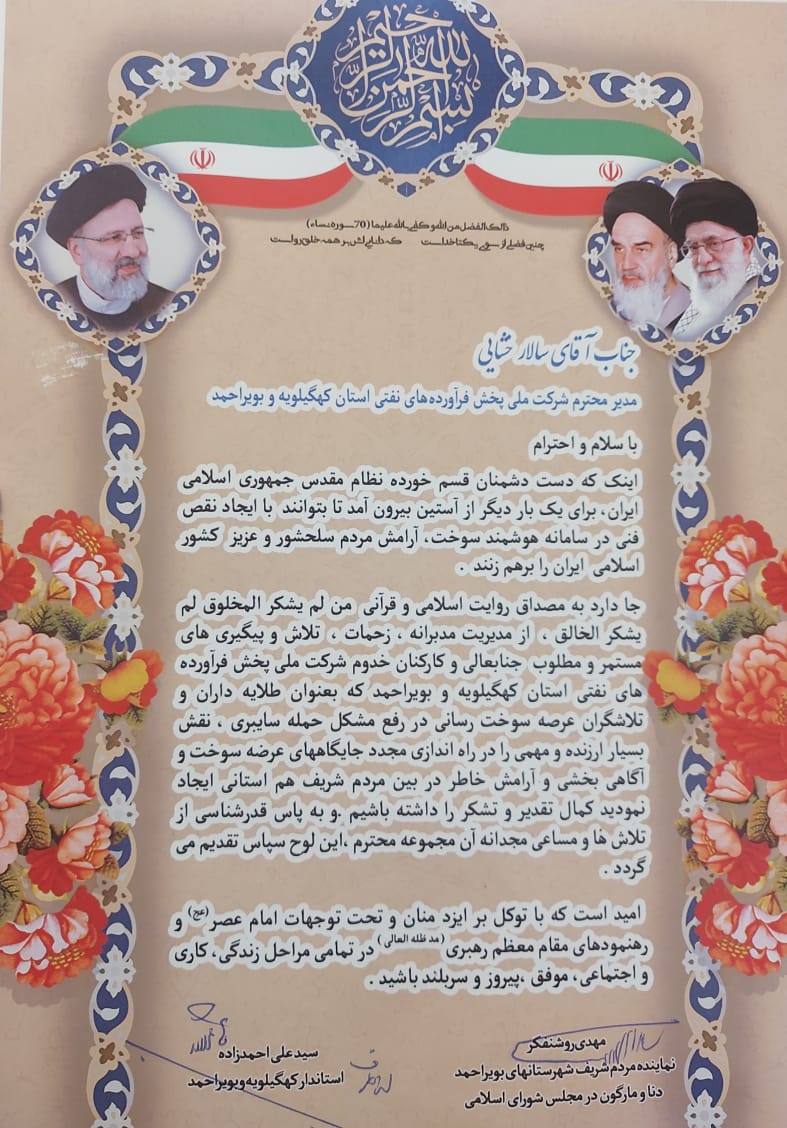 بسم الله الرحمن الرحیم
ذالک الفضل من الله و کفی بالله علیما (70سوره نساء)
چنین فضلی از سوی یکتا خداست که دانایی‌اش بر همه خلق رواست
جناب آقای سالار خشایی
مدیر محترم شرکت ملی پخش فرآورده‌های نفتی استان کهگیلویه و بویراحمد
با سلام و احترام
اینک که دست دشمنان قسم خورده نظام مقدس جمهوری اسلامی
ایران، برای یک بار دیگر از آستین بیرون آمد تا بتوانند با ایجاد نقص
فنی در سامانه هوشمند سوخت، آرامش مردم سلحشور و عزیز کشور
اسلامی ایران را برهم زنند .
جا دارد به مصداق روایت اسلامی و قرآنی من لم یشکر المخلوق لم
یشکر الخالق ، از مدیریت مدبرانه ، زحمات ، تلاش و پیگیری های
مستمر و مطلوب جنابعالی و کارکنان خدوم شرکت ملی پخش فرآورده
های نفتی استان کهگیلویه و بویراحمد که بعنوان طلایه داران و
تلاشگران عرصه سوخت رسانی در رفع مشکل حمله سایبری ، نقش
بسیار ارزنده و مهمی را در راه اندازی مجدد جایگاههای عرضه سوخت و
آگاهی بخشی و آرامش خاطر در بین مردم شریف هم استانی ایجاد
نمودید کمال تقدیر و تشکر را داشته باشیم .و به پاس قدرشناسی از
تلاش ها و مساعی مجدانه آن مجموعه محترم ،این لوح سپاس تقدیم می
گردد .
امید است که با توکل بر ایزد منان و تحت توجهات امام عصر(عج) و
رهنمودهای مقام معظم رهبری (مد ظله العالی) در تمامی مراحل زندگی، کاری
و اجتماعی، موفق ،پیروز و سربلند باشید .
مهدی روشنفکر
نماینده مردم شریف شهرستانهای بویراحمد
دنا و مارگون در مجلس شورای اسلامی
سید علی احمدزاده
استاندار کهگیلویه و بویراحمد